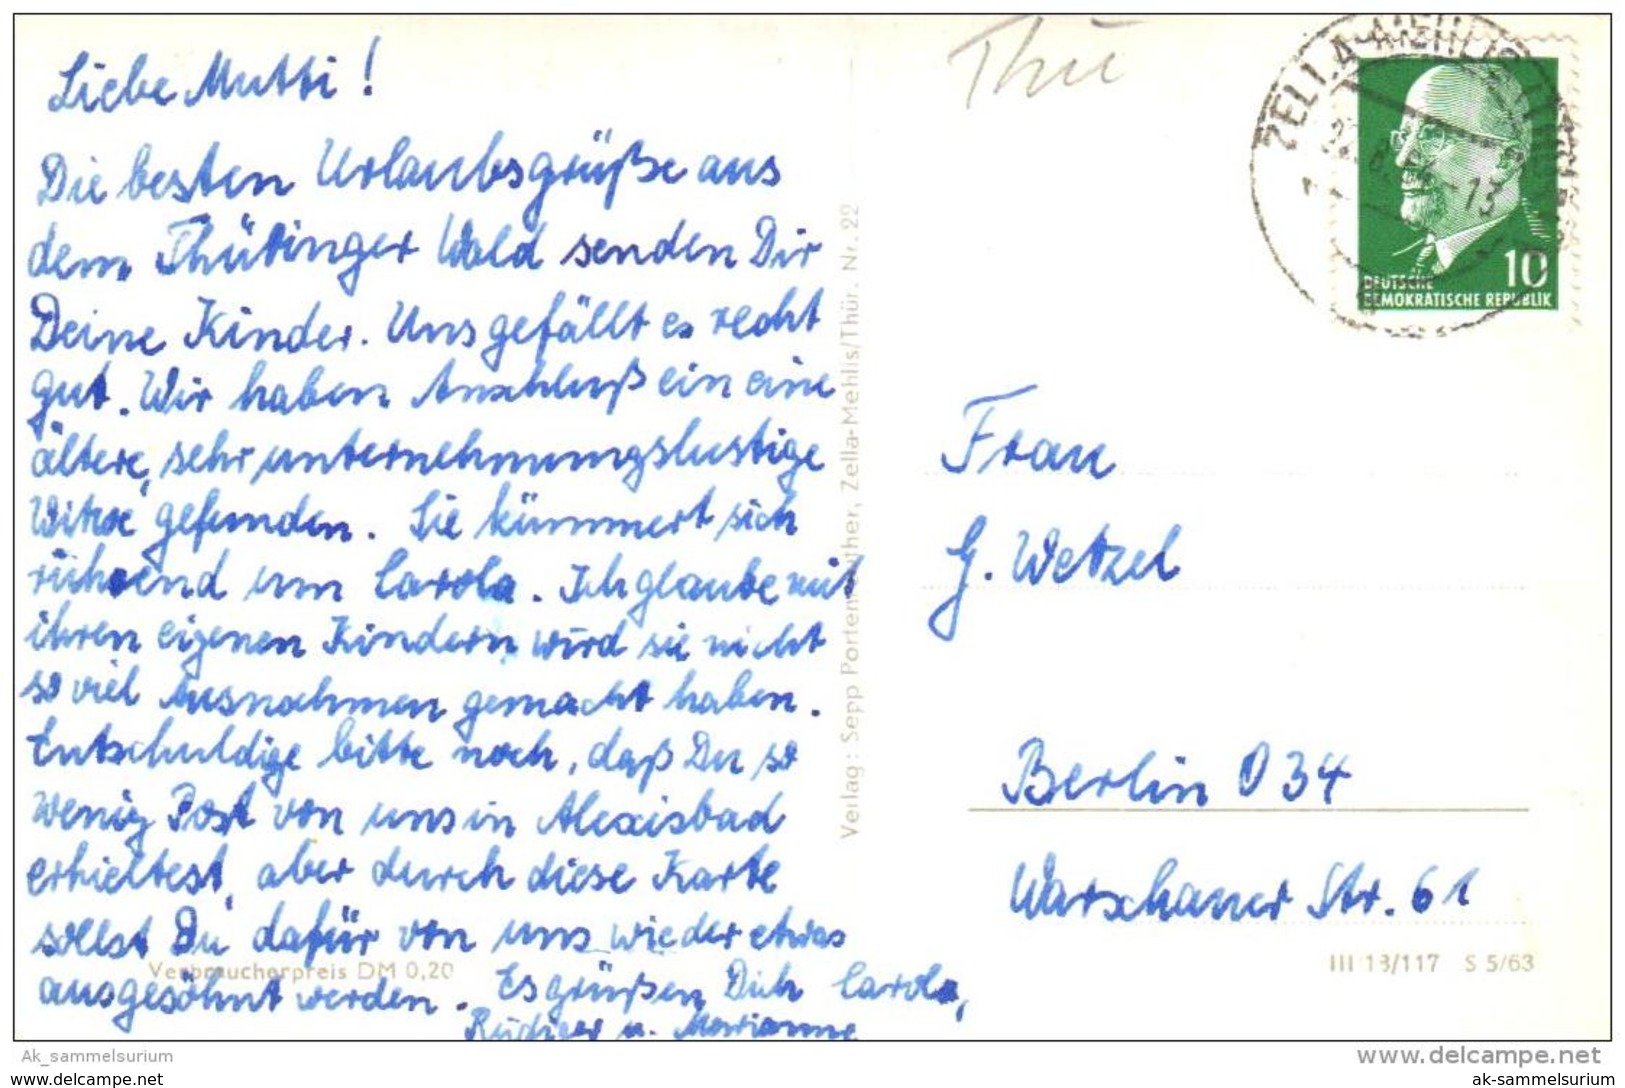 Liebe Mutti!
Die besten Urlaubsgrüße aus
dem Thüringer Wald senden Dir
Deine Kinder. Uns gefällt es recht
gut. Wir haben Anschluß ein eine
ältere, sehr unternehmungslustige
Witwe gefunden. Sie kümmert sich
rührend um Carola. Ich glaube mit
ihren eigenen Kindern, wird sie nicht
so viel Ausnahmen gemacht haben.
Entschuldige bitte noch, daß Du so
wenig Post von uns in Alexisbad
erhieltest, aber durch diese Karte
sollst Du dafür von uns wieder etwas
ausgesöhnt werden. Es grüßen Dich Carola,
Rüdiger u. Marianne
Verbraucherpreis DM 0,20
Verlag: Sepp Porten Zella-Mehlis/Thür. Nr. 22
Thü
ZELLA-MEHLIS
-13
10
DEUTSCHE
DEMOKRATISCHE REPUBLIK
Frau
G. Wetzel
Berlin O 34
Warschauer Str. 61
III 18/117 S 5/63
Ak_sammelsurium
www.delcampe.net
ak-sammelsurium@live.de
ak-sammelsurium